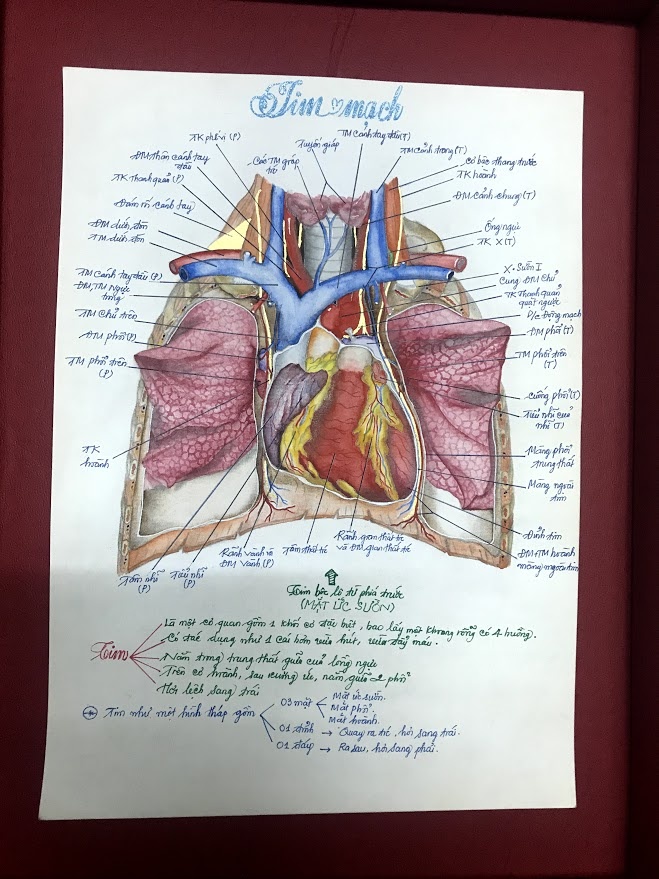 Tim mạch
TK phế vị (P)
ĐM thân cánh tay
đầu
TK Thanh quản (P)
Đám rối cánh tay
ĐM dưới đòn
TM dưới đòn
TM cánh tay đầu (P)
ĐM, TM ngực
trong
TM Chủ trên
ĐM phổi (P)
TM phổi trên
(P)
TK
hoành
Các TM giáp
Tuyến giáp
TM cánh tay đầu (T)
TM cảnh trong (T)
Cơ bậc thang trước
TK hoành
ĐM cảnh chung (T)
TK X (T)
X. Sườn I
Cung ĐM Chủ
TK Thanh quản
quặt ngược
D/c Động mạch
ĐM phổi (T)
TM phổi trên
(T)
Cuống phổi (T)
Tiểu nhĩ của
nhĩ (T)
Màng phổi
trung thất
Màng ngoài
tim
Đỉnh tim
ĐM TM hoành
màng ngoài tim
Tâm nhĩ
(P)
Tiểu nhĩ
(P)
Rãnh vành và
ĐM Vành (P)
Tâm thất
Rãnh gian thất
và ĐM gian thất
Tim bộc lộ từ phía trước
(MẶT ỨC SƯỜN)
Tim
Là một cơ quan gồm 1 khối cơ đặc biệt, bao lấy một khoang rỗng có 4 buồng.
Có tác dụng như 1 cái bơm vừa hút, vừa đẩy máu.
Nằm trong trung thất giữa của lồng ngực
Trên cơ hoành, sau xương ức, nằm giữa 2 phổi
Hơi lệch sang trái
Tim như một hình tháp gồm
03 mặt
Mặt ức sườn.
Mặt phổi.
Mặt hoành.
01 đỉnh → Quay ra trc, hơi sang trái.
01 đáy → Ra sau, hơi sang phải.